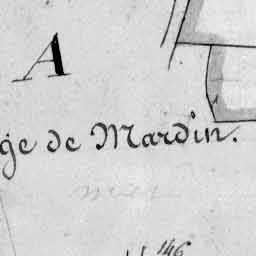 A
ge de Mardin.
146